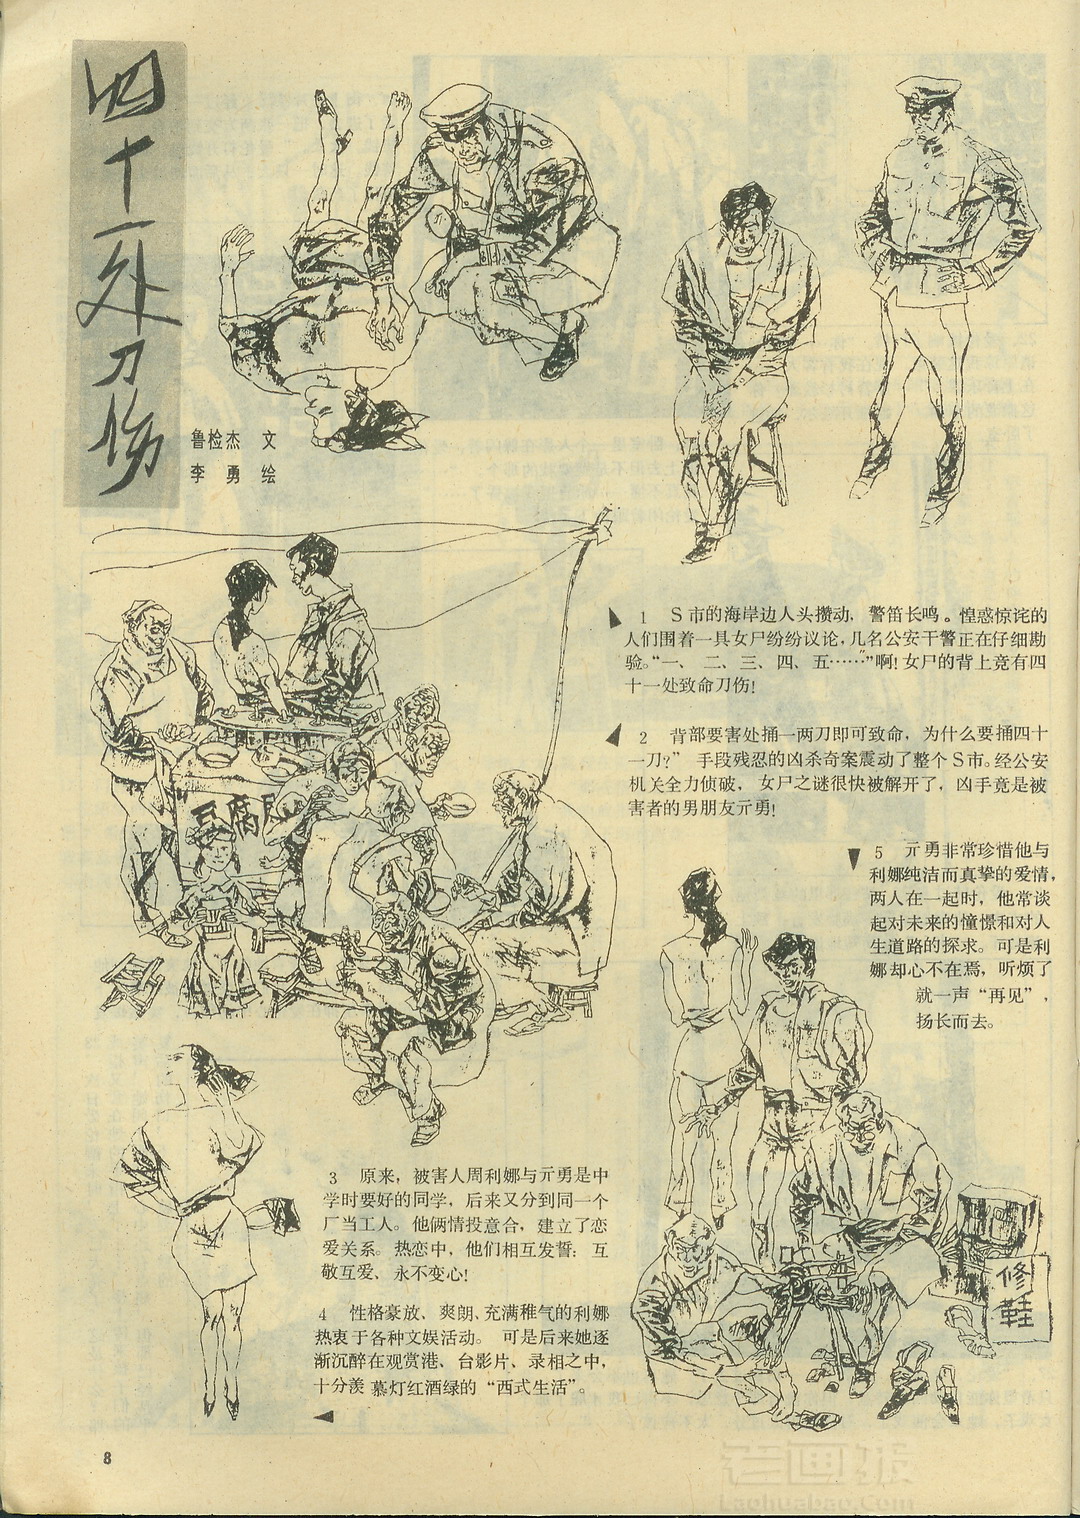 四十一处刀伤
鲁检杰 文
李 勇 绘
1 S市的海岸边人头攒动，警笛长鸣。惶惑惊诧的
人们围着一具女尸纷纷议论，几名公安干警正在仔细勘
验。“一、二、三、四、五……”啊！女尸的背上竟有四
十一处致命刀伤！
2 背部要害处捅一两刀即可致命，为什么要捅四十
一刀？” 手段残忍的凶杀奇案震动了整个S市。经公安
机关全力侦破，女尸之谜很快被解开了，凶手竟是被
害者的男朋友亓勇！
豆腐
3 原来，被害人周利娜与亓勇是中
学时要好的同学，后来又分到同一个
厂当工人。他俩情投意合，建立了恋
爱关系。热恋中，他们相互发誓：互
敬互爱、永不变心！
4 性格豪放、爽朗、充满稚气的利娜
热衷于各种文娱活动。可是后来她逐
渐沉醉在观赏港、台影片、录相之中，
十分羡慕灯红酒绿的“西式生活”。
5 亓勇非常珍惜他与
利娜纯洁而真挚的爱情，
两人在一起时，他常谈
起对未来的憧憬和对人
生道路的探求。可是利
娜却心不在焉，听烦了
就一声“再见”，
扬长而去。
修
鞋
8
老画报
Laohuabao.Com